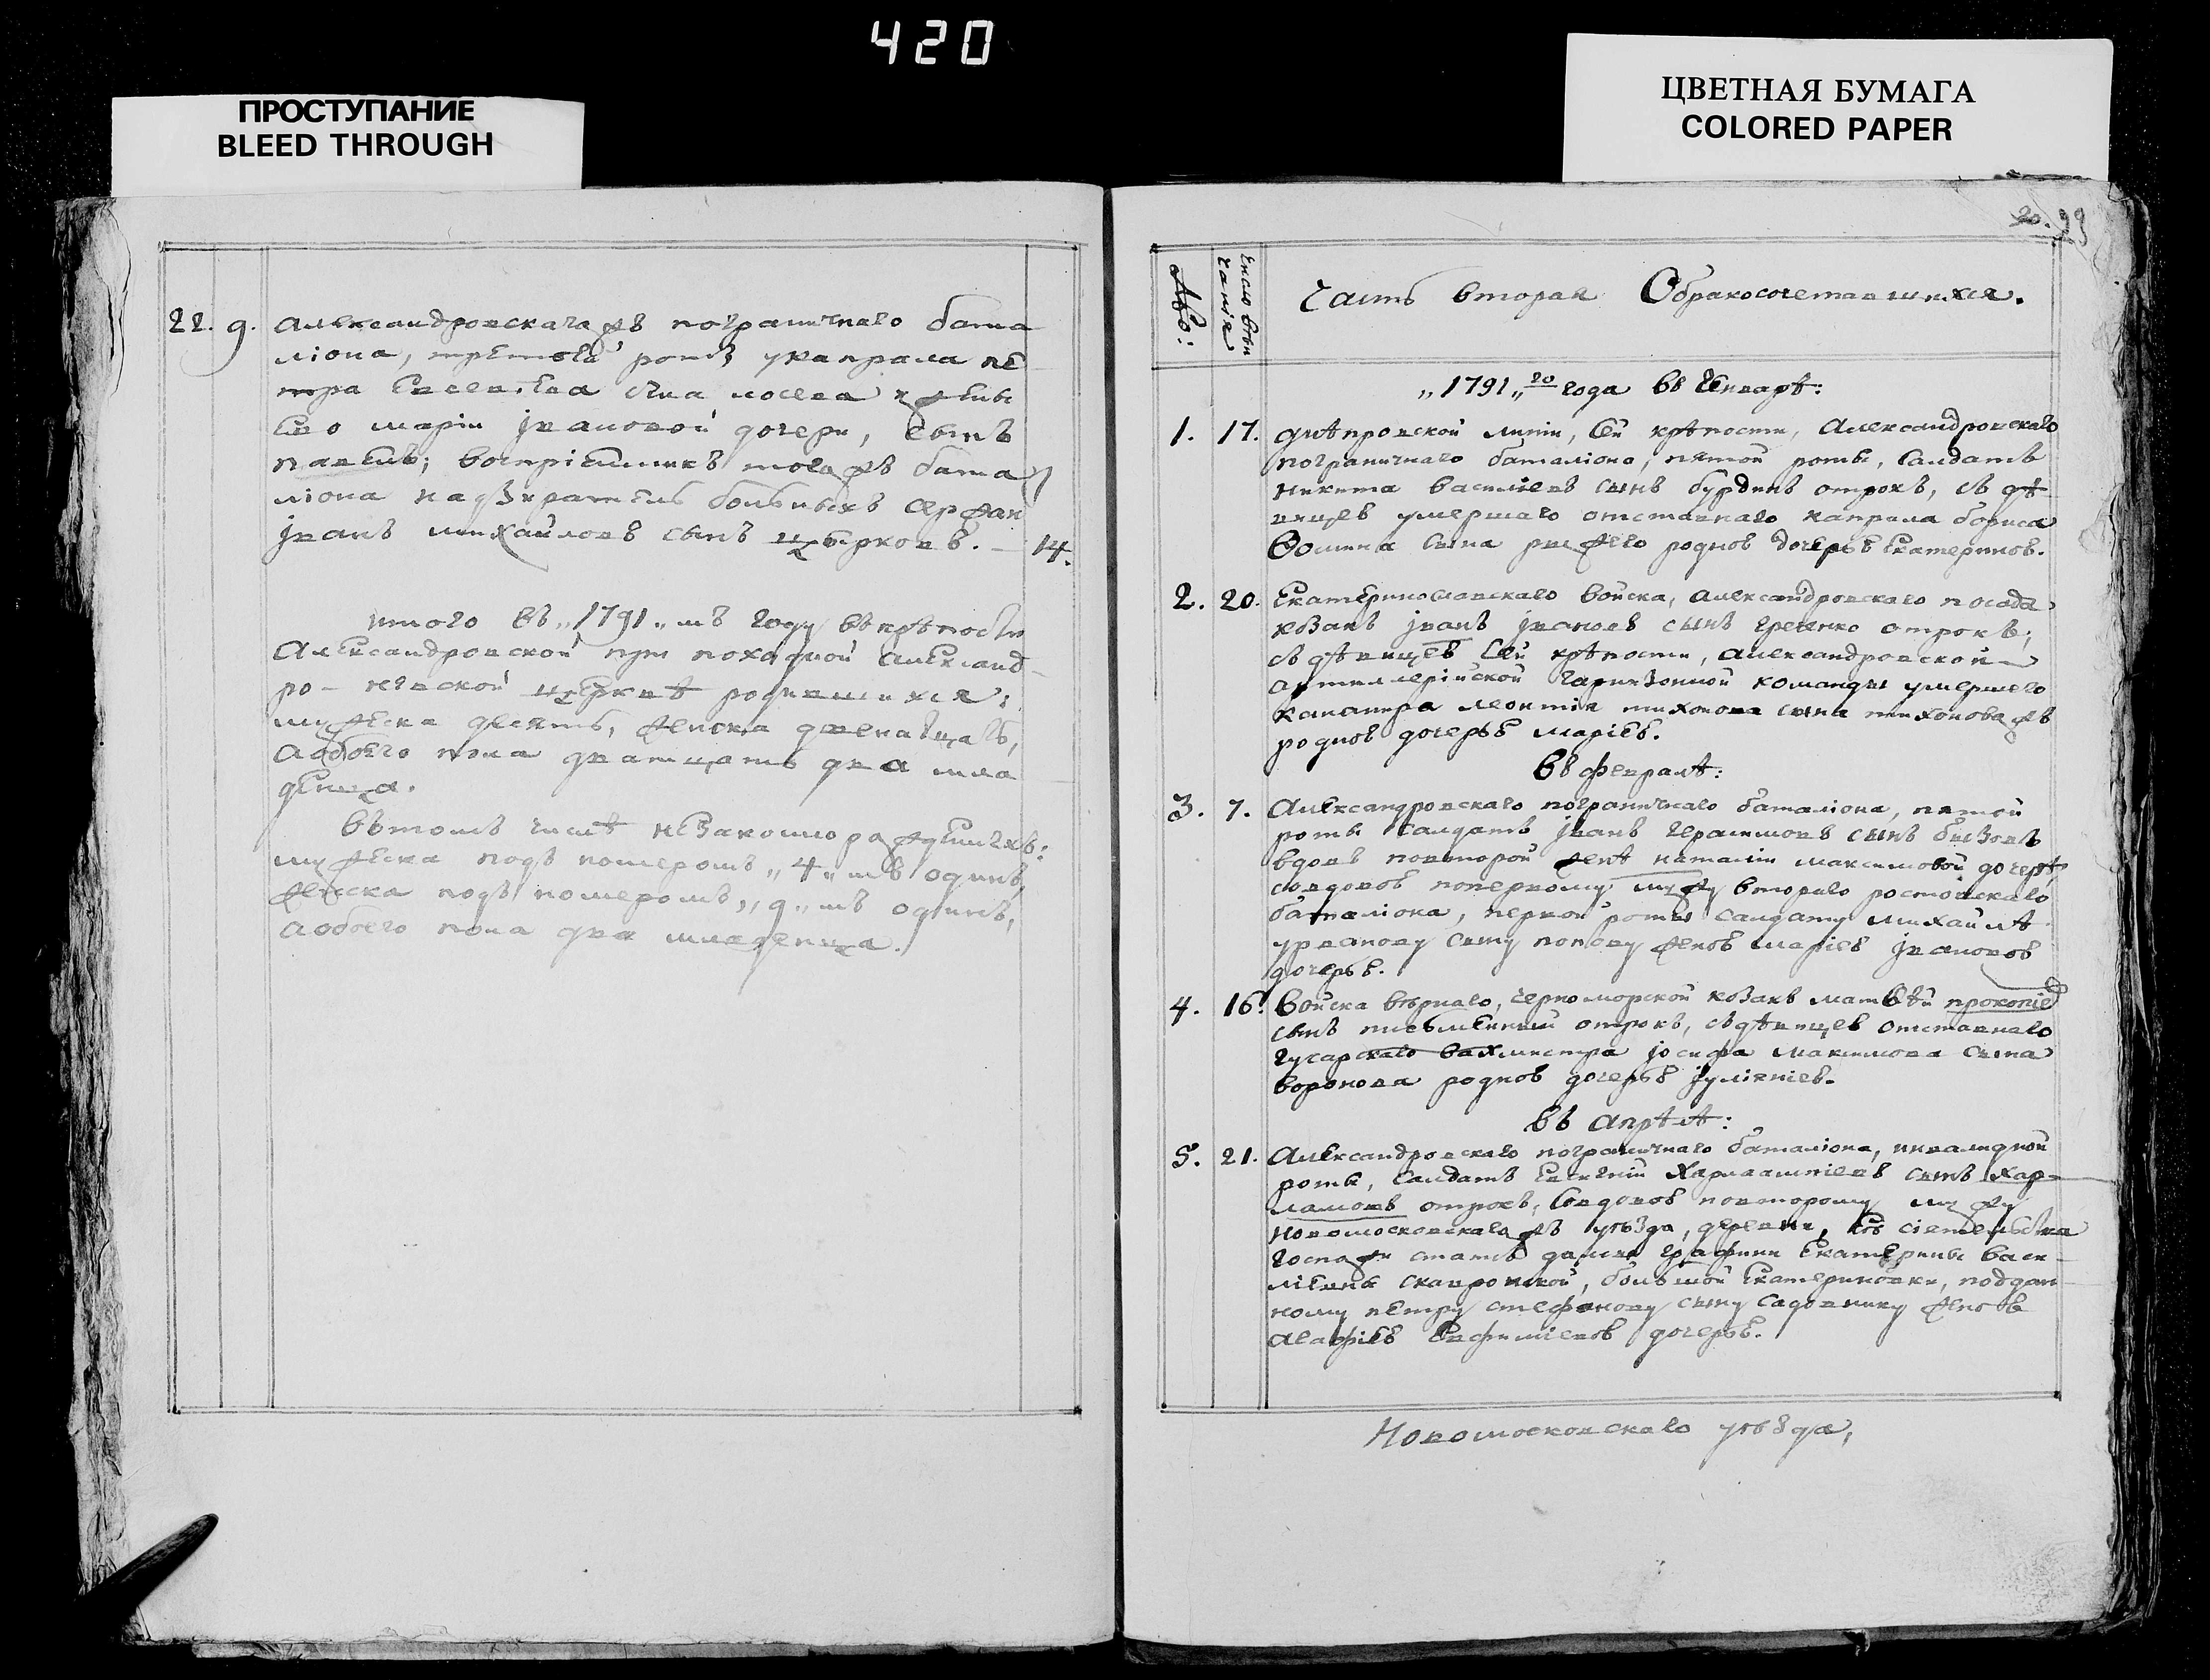 420
ПРОСТУПАНИЕ
BLEED THROUGH
ЦВЕТНАЯ БУМАГА
COLORED PAPER
22. 9. Александровскагажъ пограничнаго бата
ліона, третей роты укапрала пе
тра Евсевіева сына лосева жены
Ево маріи їрановой дочери, сынъ
павелъ; воспріемникъ тогажъ бата
ліона надзиратель больныхъ сержан
їванъ михайловъ сынъ цырковъ. 14.
итого въ „1791„ мъ году въ крѣпости
Александровской при походной Александ
ро-невской церквѣ родившихся:
мужеска десять, женска двенатцать,
аобоего пола дватцать два мла
денца.
Вътомъ числѣ незаконно рожденныхъ:
мужеска подъ номеромъ „4„ мъ одинъ,
женска подъ номеромъ, „9„ мъ одинъ,
аобоего пола два младенца.
20. 99
Часть вторая Обракосочетавшихся.
„1791„ го года въ Генварѣ:
1. 17. Днѣпровской линіи, Сей крѣпости, Александровскаго
пограничнаго баталіона, пятой роты, Салдатъ
никита васильевъ сынъ бурдинъ отрокъ, съ дѣ
вицею умершаго отставнаго капрала бориса
Ѳомина сына рыжего родною дочерью Екатериною.
2. 20. Екатеринославскаго войска, Александровскаго посада
козакъ їванъ ївановъ сынъ гресенко отрокъ;
съ дѣвицею Сей крѣпости, Александровской
артиллерійской гарнизонной команды умершего
канапира леонтія тихонова сына тихоноважъ
родною дочерью маріею.
Въ февралѣ:
3. 7. Александровскаго пограничнаго баталіона, пятой
роты салдатъ їванъ герасимовъ сынъ бизовъ
вдовъ повторой женѣ наталіи максимовой дочерѣ,
совдовою поперво­му мужу втораго ростовскаго
баталіона, первой роты салдату михайлѣ
урванову сыну попову женою маріею їрановою
дочерью.
4. 16. Войска вѣрнаго, черноморской козакъ матвѣй прокопіев
сынъ письменный отрокъ, съдѣвицею отставнаго
гусарскаго вахмистра їосифа максимова сына
воронова родною дочерью їуліяніею.
Въ Апрѣлѣ:
5. 21. Александровскаго пограничнаго баталіона, инвалидной
роты, салдатъ Евгеній Харлампіевъ сынъ Хар-
ламовъ отрокъ, Совдовою повторому мужу
новомосковскагажъ уѣзда, деревни, Ея сіятельства
госпожи статсъ дамы графини Екатерины васи
ліевны скавронской, большой Екатериновки, поддан
ному петру стефанову сыну садовнику женою
агафіею Евфиміевою дочерью.
Новомосковскаго уѣзда,